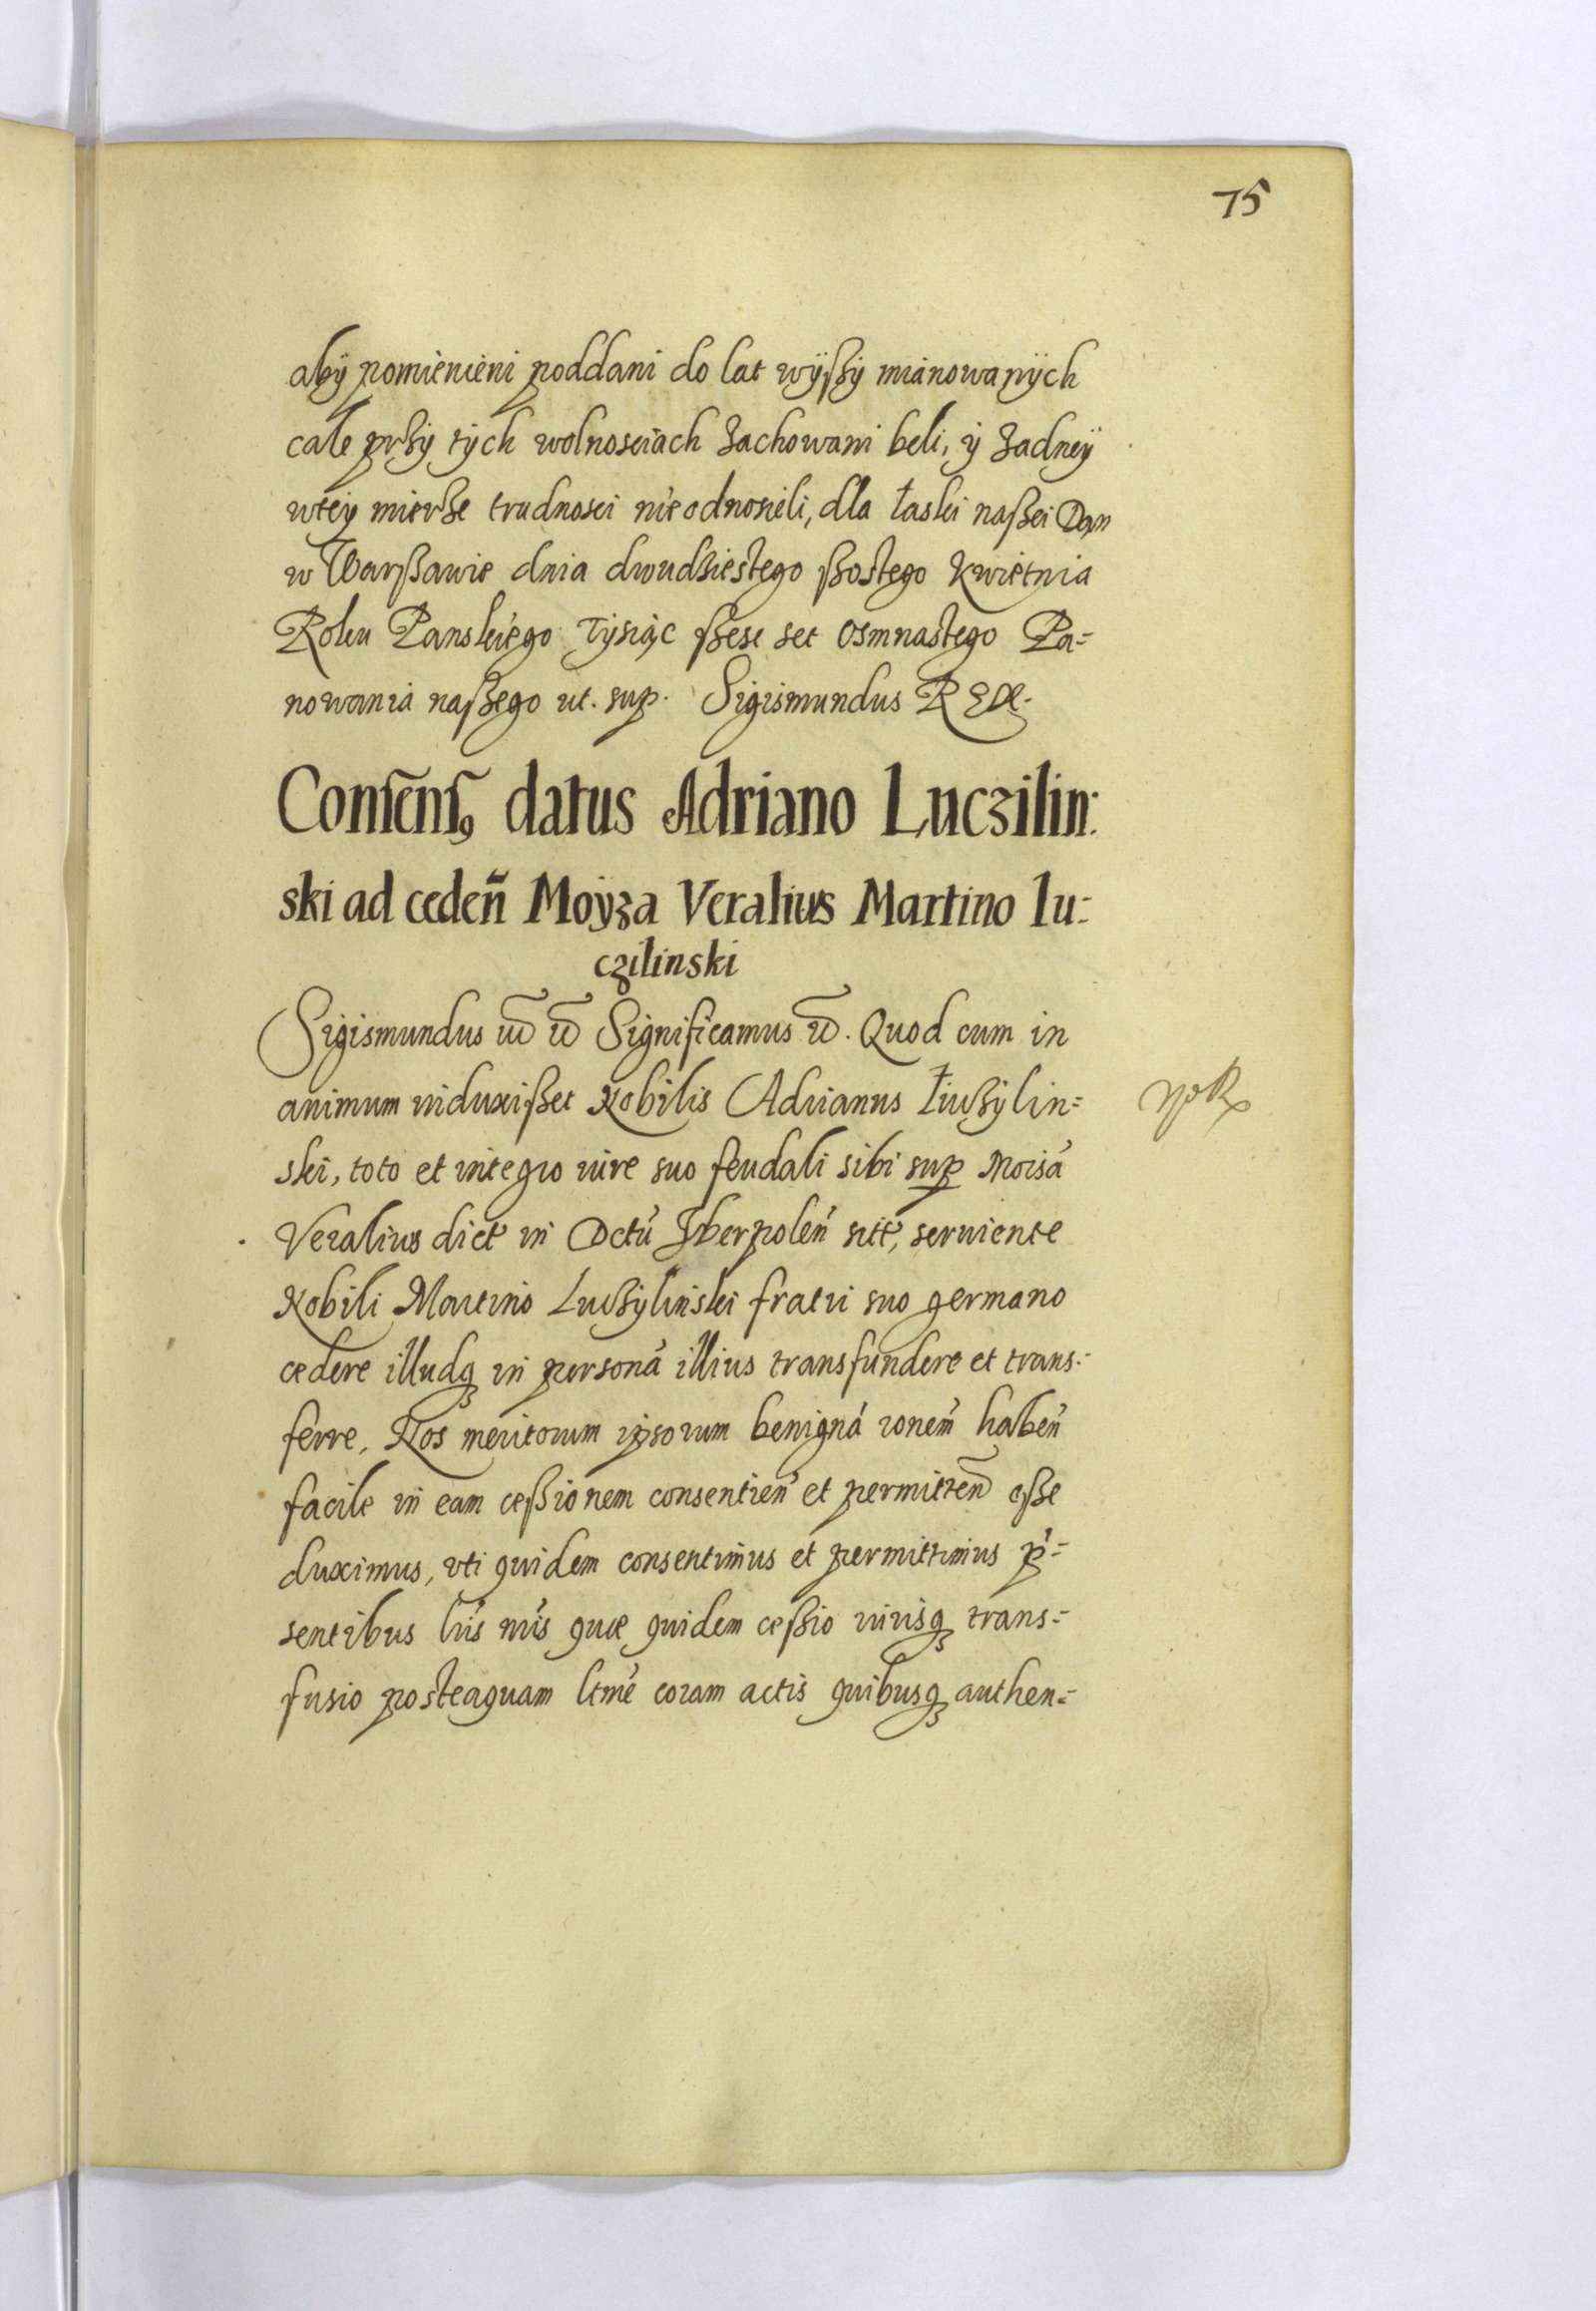 75
abÿ pomienieni poddani do lat wÿßÿ mianowanÿch
cale przÿ tÿch wolnosciach zachowani beli, ÿ zadneÿ
wteÿ mierze trudnosci nieodnosieli, dla łaski naßei Dan
w Warßawie dnia dwudziestego ßostego Kwietnia
Roku Panskiego Tÿsiąc ßesc set osmnastego Pa=
nowania naßego ut. sup. Sigismundus REX.
Consēns9 datus Adriano Luczilin:
ski ad cedeñ Moÿza Veralius Martino lu=
czilinski
Sigismundus Significamus Quod cum in
animum induxißet Nobilis Adrianus Łiuczÿlin=
ski, toto et integro iure suo feudali sibi sup Moisá
Veralius dict in Dctú Iberpoleń sitt, seruiente
Nobili Martino Luczÿlinski fratri suo germano
cedere illudq; in personá illius transfundere et trans=
ferre, Nos meritorum ipsorum benigná ronem̃ habeñ
facile in eam ceßionem consentieñ et permitteñ eße
duximus, vti quidem consentimus et permittimus p̃=
sentibus lr̃is nr̃is quæ quidem ceßio iurisq; trans=
fusio posteaquam ltmẽ coram actis quibusq; authen=